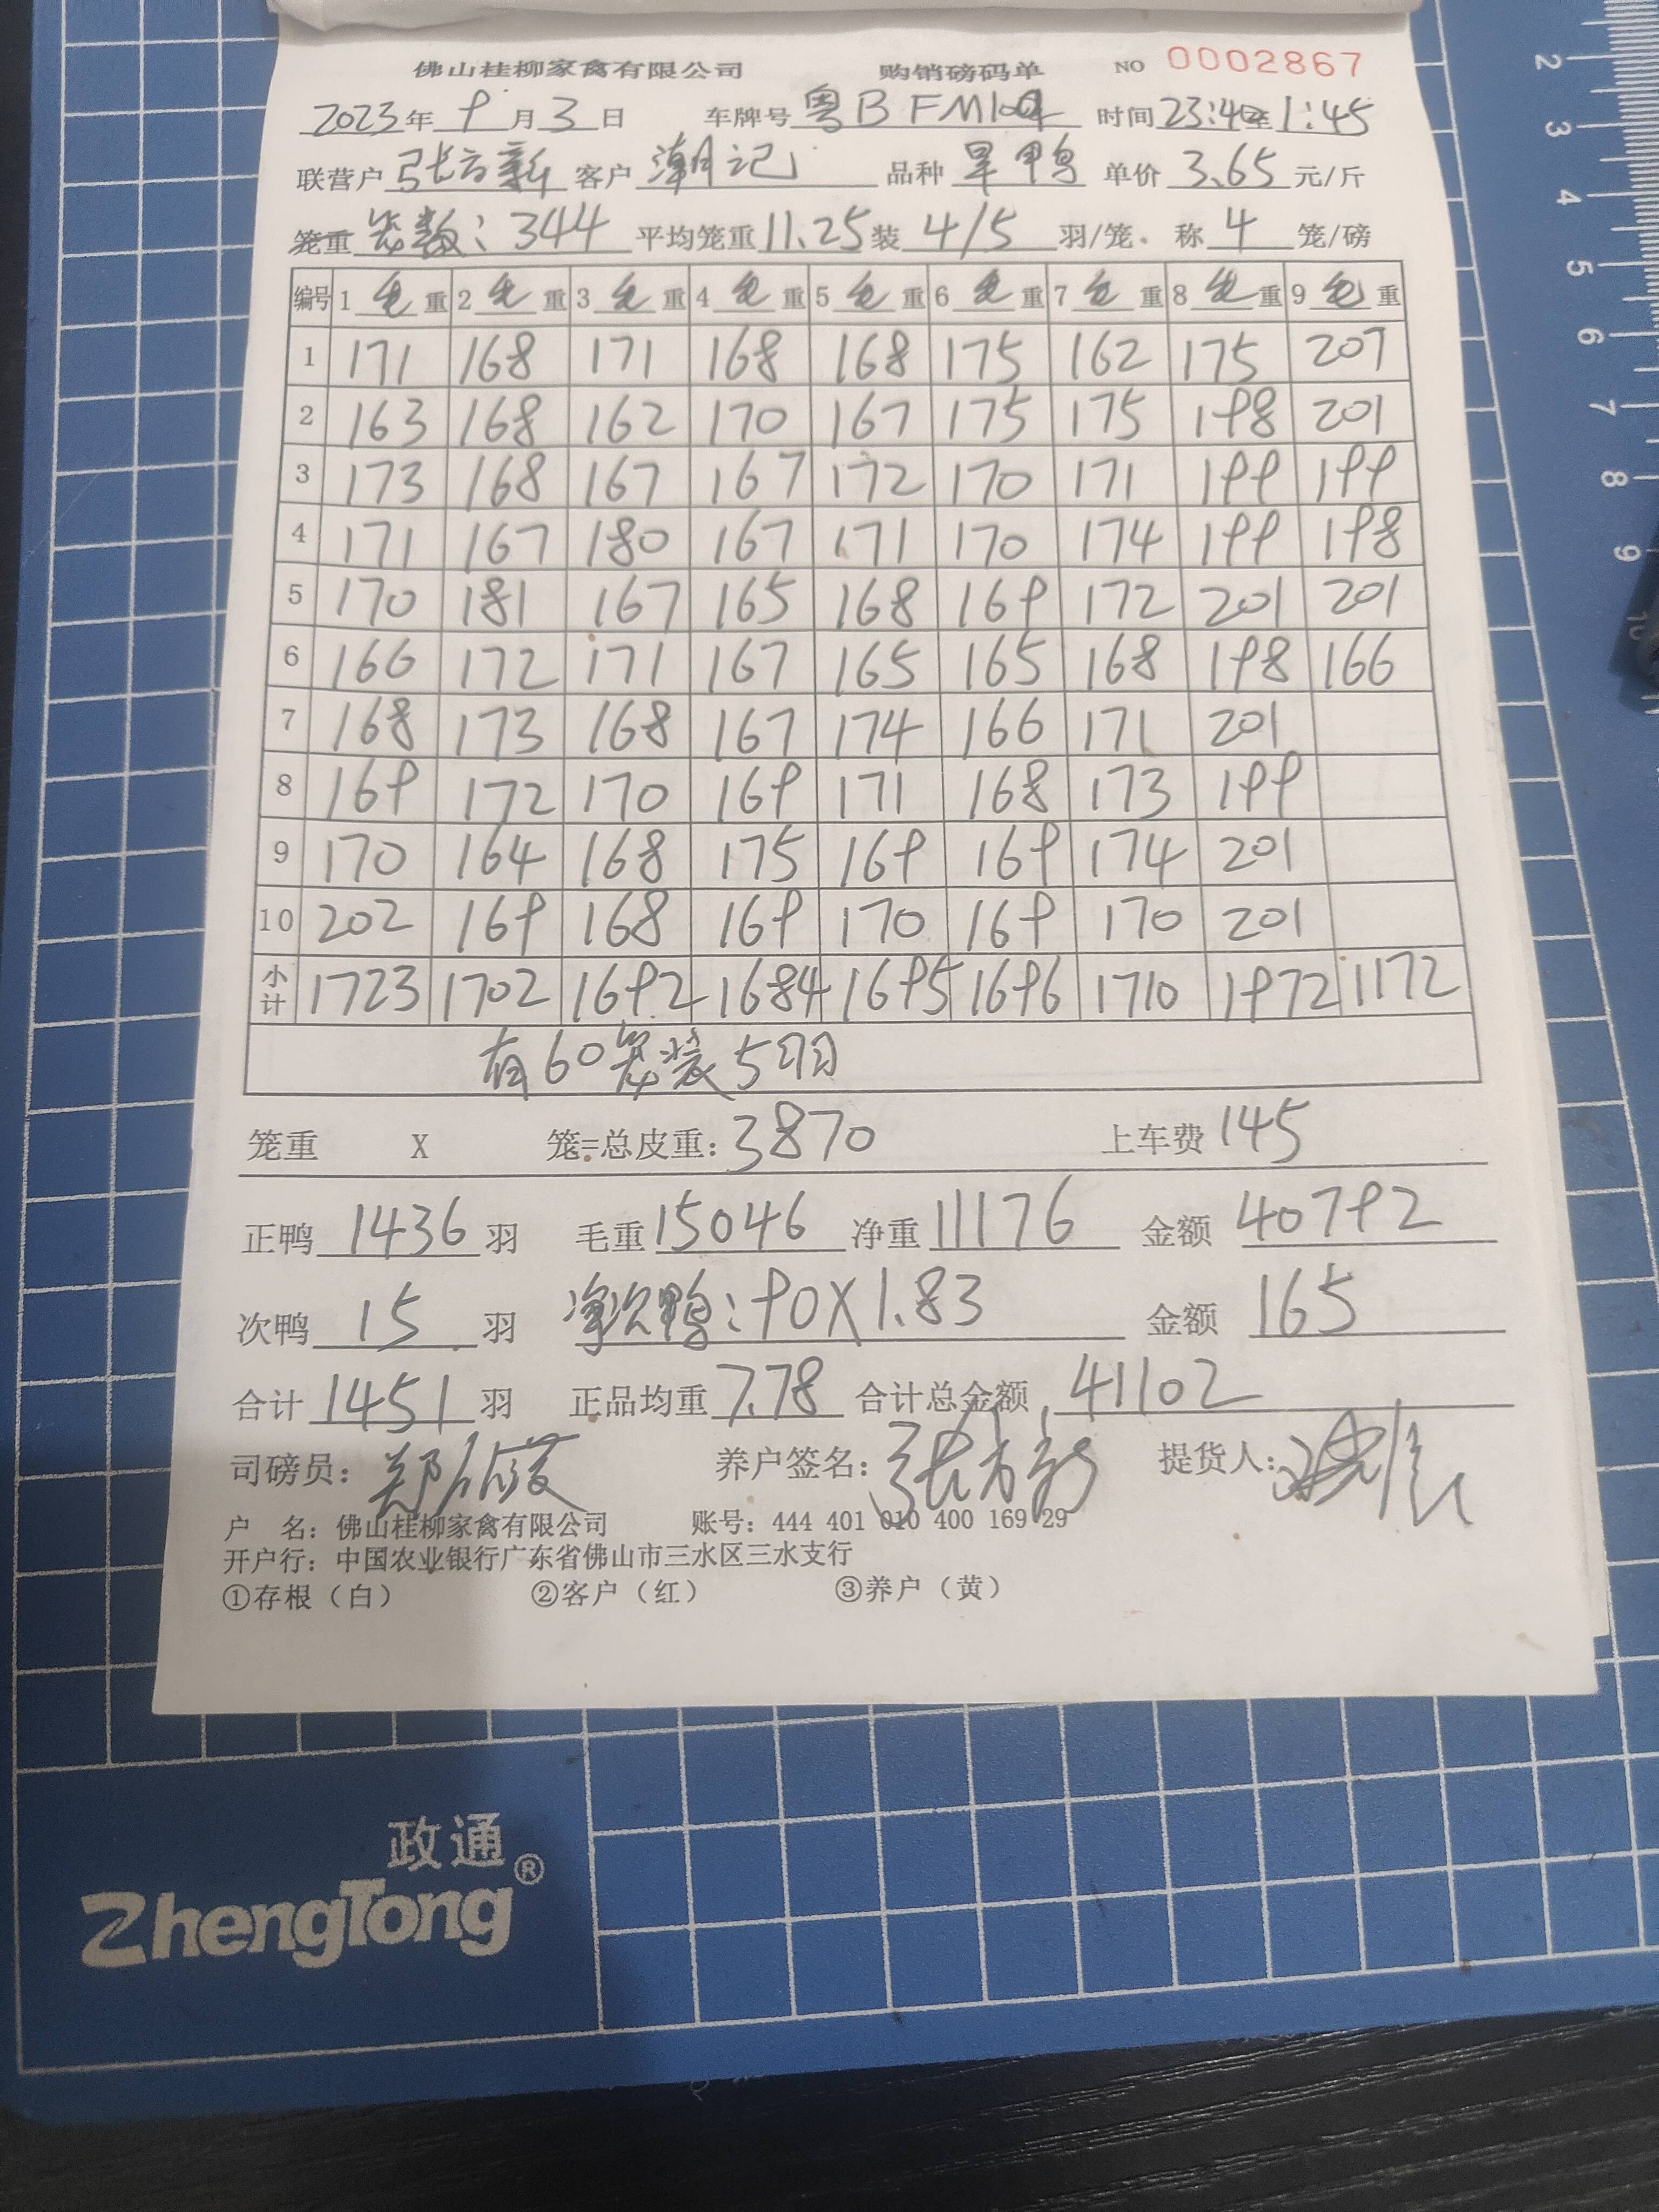 佛山桂柳家禽有限公司 购销磅码单 NO 0002867
2023年 9月 3日 车牌号 粤B FM109 时间 23:40至1:45
联营户 张方新 客户 潮记 品种 旱鸭 单价 3.65 元/斤
笼重 笼数: 344 平均笼重 11.25 装 4/5 羽/笼. 称 4 笼/磅
编号 1 毛 重 2 毛 重 3 毛 重 4 毛 重 5 毛 重 6 毛 重 7 毛 重 8 毛 重 9 毛 重
1 171 168 171 168 168 175 162 175 207
2 163 168 162 170 167 175 175 198 201
3 173 168 167 167 172 170 171 199 199
4 171 167 180 167 171 170 174 199 198
5 170 181 167 165 168 169 172 201 201
6 166 172 171 167 165 165 168 198 166
7 168 173 168 167 174 166 171 201
8 169 172 170 169 171 168 173 199
9 170 164 168 175 169 169 174 201
10 202 169 168 169 170 169 170 201
小计 1723 1702 1692 1684 1695 1696 1710 1972 1172
有60笼装5羽
笼重 X 笼=总皮重: 3870 上车费 145
正鸭 1436 羽 毛重 15046 净重 11176 金额 40792
次鸭 15 羽 净次鸭: 90X1.83 金额 165
合计 1451 羽 正品均重 7.78 合计总金额 41102
司磅员: 养户签名: 张方新 提货人:
户 名: 佛山桂柳家禽有限公司 账号: 444 401 010 400 169 29
开户行: 中国农业银行广东省佛山市三水区三水支行
①存根(白) ②客户(红) ③养户(黄)
2
3
4
5
6
7
8
9
10
政通®
ZhengTong